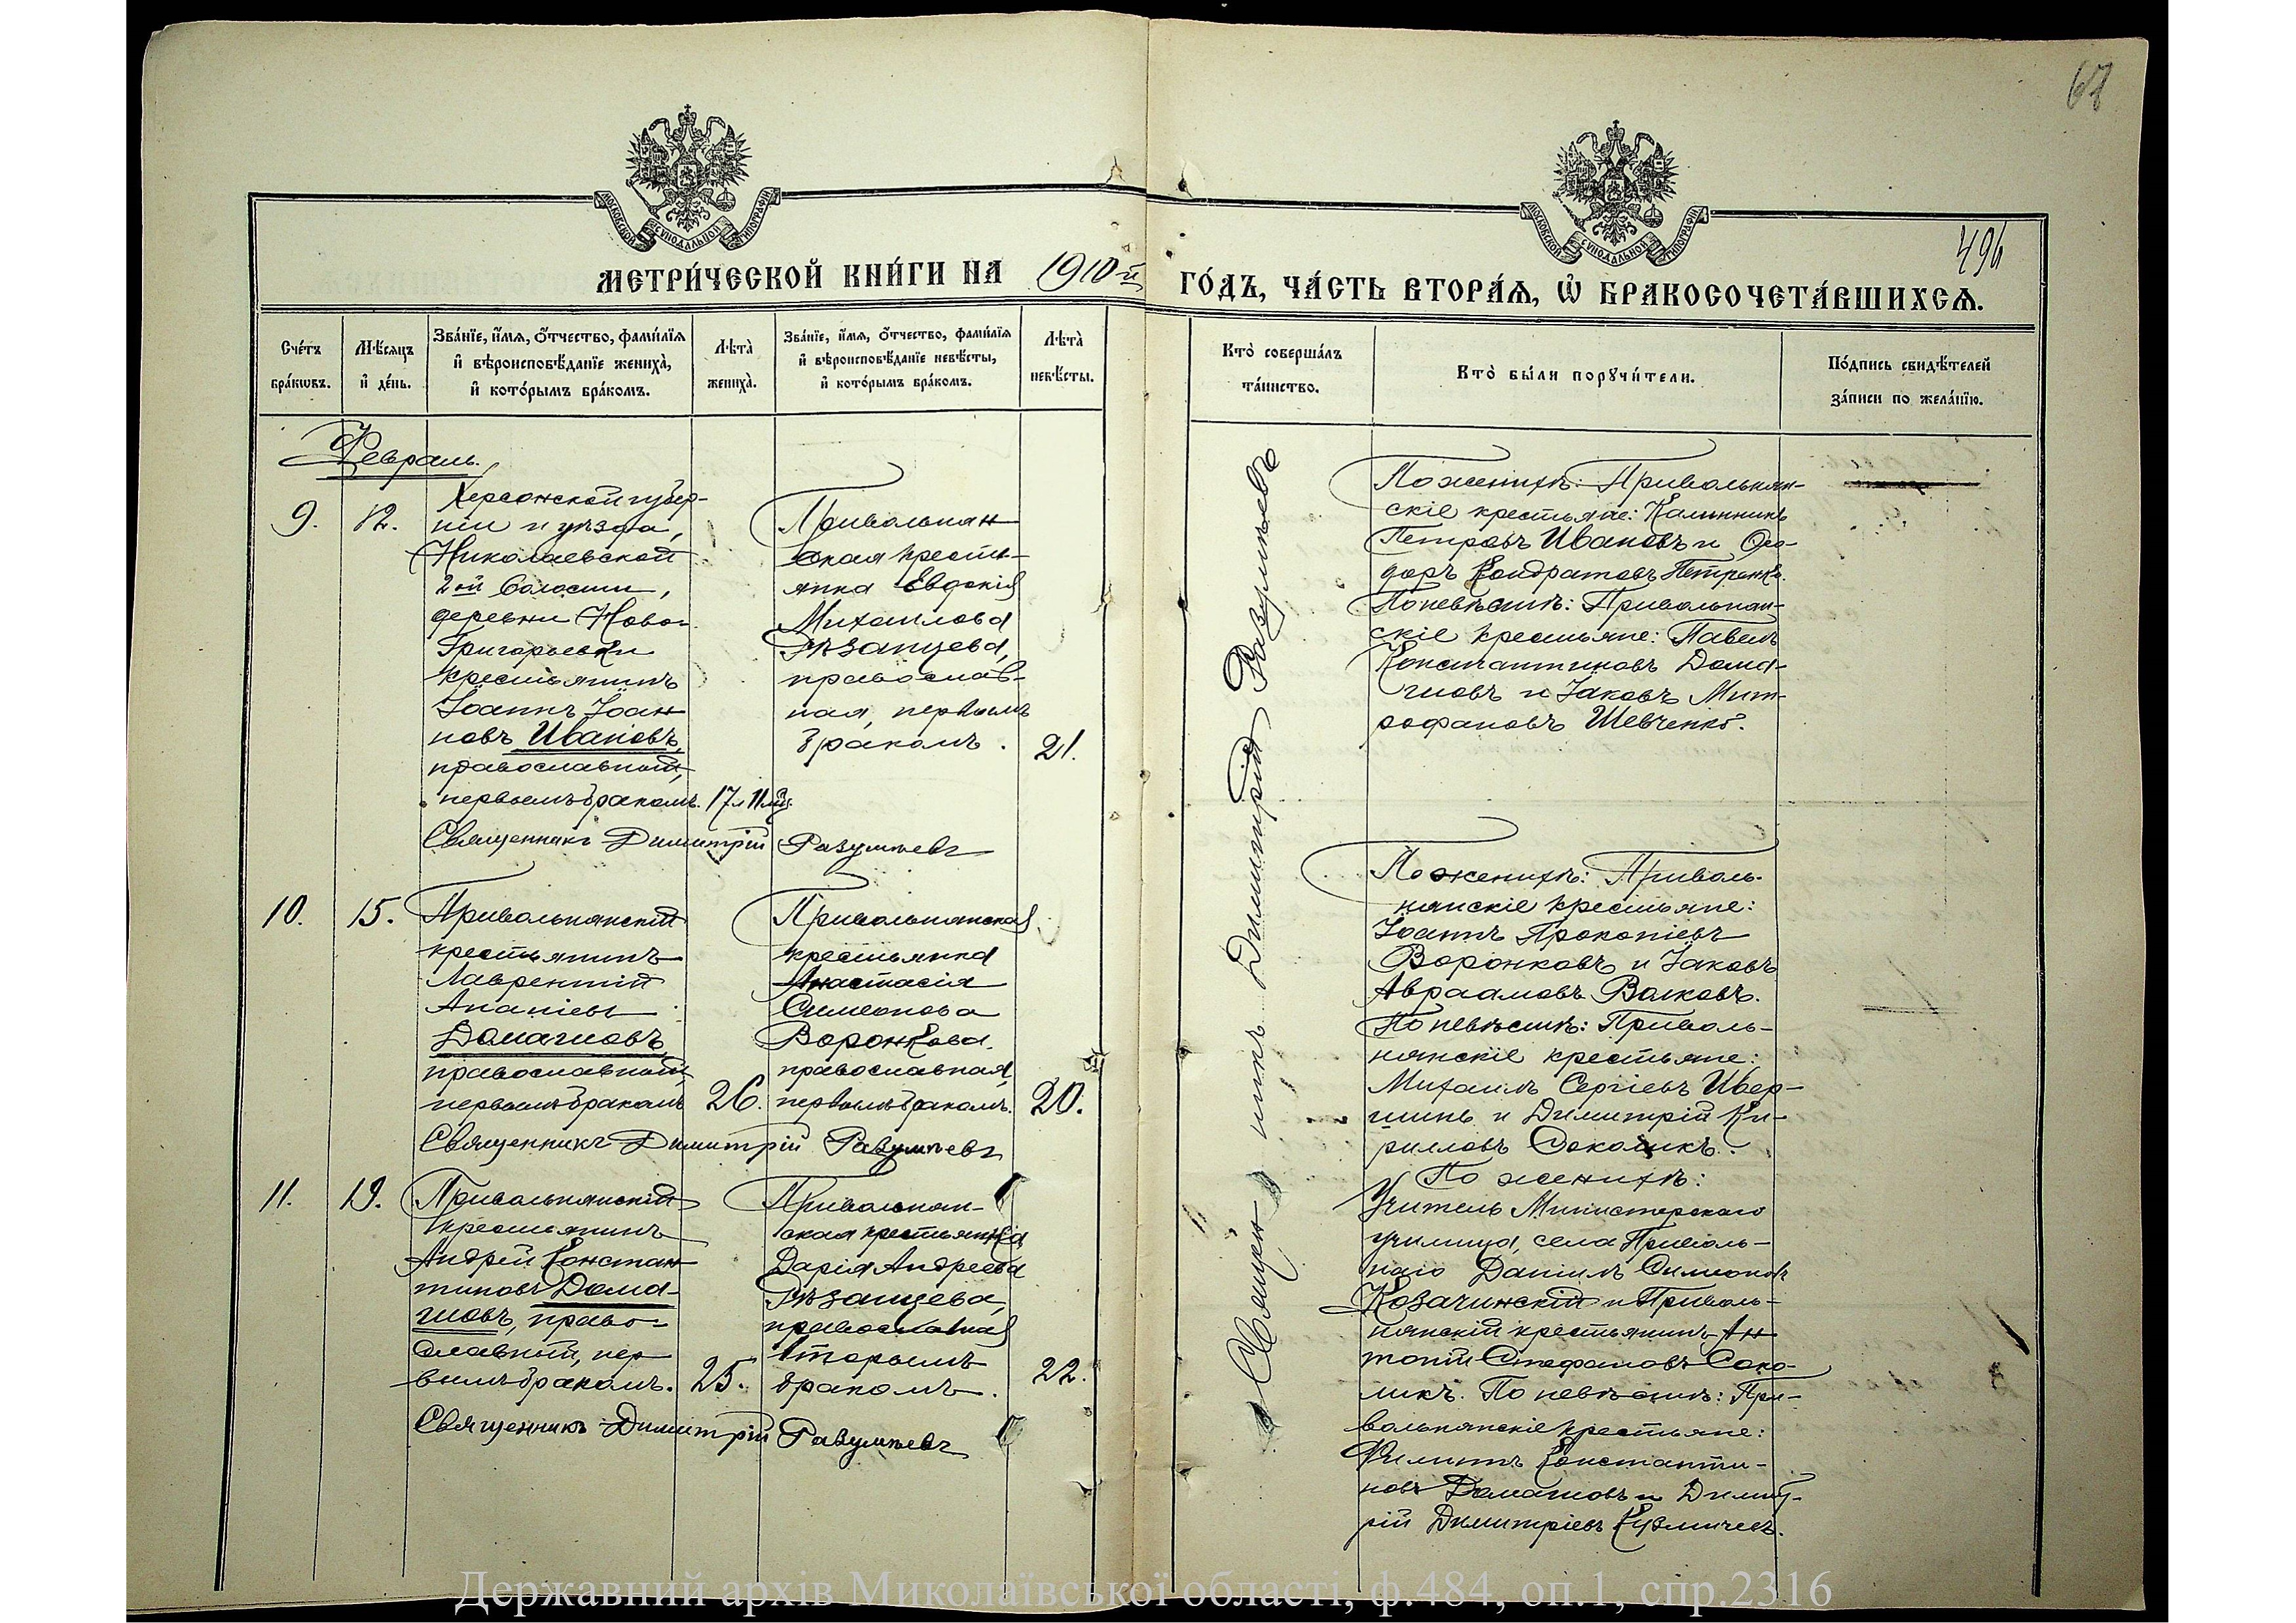 67
496
МОСКОВСКОЙ СУНОДАЛЬНОЙ ТИПОГРАФІИ
МОСКОВСКОЙ СУНОДАЛЬНОЙ ТИПОГРАФІИ
МЕТРИ́ЧЕСКОЙ КНИ́ГИ НА 1910-й ГО́ДЪ, ЧА́СТЬ ВТОРА́Ѧ, Ѽ БРАКОСОЧЕТА́ВШИХСѦ.
Сче́тъ
бра́кѡвъ.
Мѣ́сяцъ
и҆ де́нь.
Зва́нїе, и҆́мѧ, ѻ҆́тчество, фами́лїѧ
и҆ вѣроисповѣ́данїе жениха̀,
и҆ кото́рымъ бра́комъ.
Лѣта̀
жениха̀.
Зва́нїе, и҆́мѧ, ѻ҆́тчество, фами́лїѧ
и҆ вѣроисповѣ́данїе невѣ́сты,
и҆ кото́рымъ бра́комъ.
Лѣта̀
невѣ́сты.
Кто̀ соверша́лъ
та́инство.
Кто̀ бы́ли порꙋчи́тели.
По́дпись свидѣ́телей
за́писи по жела́нїю.
Февраль.
9.
12.
Херсонской губер-
ніи и уѣзда,
Николаевской
2ой волости,
деревни Ново-
Григорьевки
крестьянинъ
Іоаннъ Іоан
новъ Ивановъ,
православный,
первымъ бракомъ.
17 л 11 мѣс.
Привольнян
ская кресть-
янка Евдокія
Михаилова
Рѣзанцева,
православ-
ная, первымъ
бракомъ.
21.
Священникъ Димитрій Разумѣевъ
По женихѣ: Привольнян-
скіе крестьяне: Калинникъ
Петровъ Ивановъ и Ѳео-
доръ Кондратовъ Петренко.
По невѣстѣ: Привольнян-
скіе крестьяне: Павелъ
Константиновъ Дома-
шовъ и Іаковъ Мит-
рофановъ Шевченко.
10.
15.
Привольнянскій
крестьянинъ
Лаврентій
Ананіевъ
Домашовъ
православный,
первымъ бракомъ
26.
Привольнянская
крестьянка
Анастасія
Симеонова
Воронкова,
православная,
первымъ бракомъ.
20.
Священникъ Димитрій Разумѣевъ
По женихѣ: Приволь-
нянскіе крестьяне:
Іоаннъ Прокопіевъ
Воронковъ и Іаковъ
Авраамовъ Волковъ.
По невѣстѣ: Приволь-
нянскіе крестьяне:
Михаилъ Сергіевъ Ивер-
шинъ и Димитрій Ки-
рилловъ Соколикъ.
11.
19.
Привольнянскій
крестьянинъ
Андрей Констан
тиновъ Дома-
шовъ, право-
славный, пер
вымъ бракомъ.
25.
Привольнян-
ская крестьянка
Дарія Андреева
Рѣзанцева,
православная
вторымъ
бракомъ.
22.
Священникъ Димитрій Разумѣевъ
По женихѣ:
Учитель Министерскаго
училища, села Приволь-
наго Даніилъ Симеоновъ
Козачинскій и Приволь-
нянскій крестьянинъ Ан
тоній Стефановъ Соко-
ликъ. По невѣстѣ: При-
вольнянскіе крестьяне:
Филиппъ Константи-
новъ Домашовъ и Димит-
рій Димитріевъ Кузмичевъ.
Священникъ Димитрій Разумѣевъ
Державний архів Миколаївської області, ф.484, оп.1, спр.2316